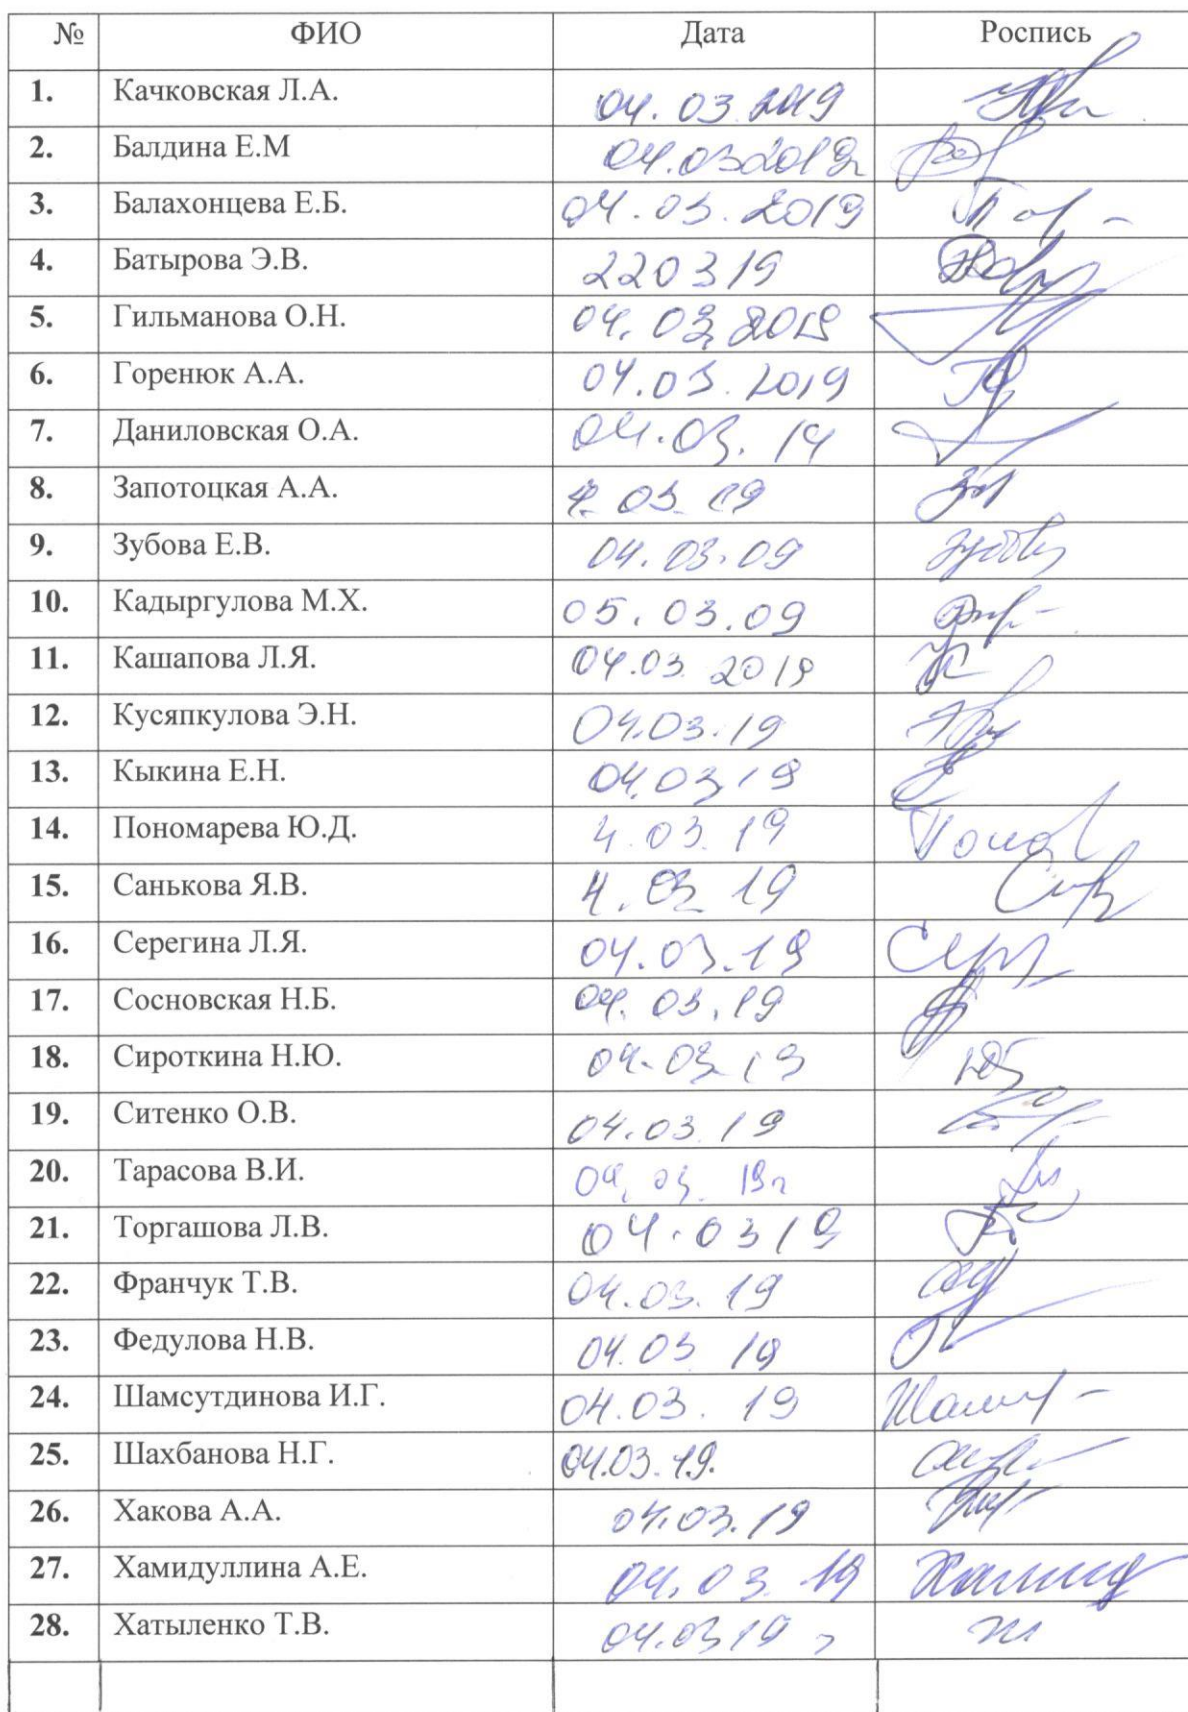 № ФИО Дата Роспись
1. Качковская Л.А. 04.03.2019
2. Балдина Е.М 04.03.2019г
3. Балахонцева Е.Б. 04.03.2019
4. Батырова Э.В. 220319
5. Гильманова О.Н. 04.03.2019
6. Горенюк А.А. 04.03.2019
7. Даниловская О.А. 04.03.19
8. Запотоцкая А.А. 4.03.19
9. Зубова Е.В. 04.03.09
10. Кадыргулова М.Х. 05.03.09
11. Кашапова Л.Я. 04.03.2019
12. Кусяпкулова Э.Н. 04.03.19
13. Кыкина Е.Н. 04.03.19
14. Пономарева Ю.Д. 4.03.19
15. Санькова Я.В. 4.03.19
16. Серегина Л.Я. 04.03.19
17. Сосновская Н.Б. 04.03.19
18. Сироткина Н.Ю. 04.03.19
19. Ситенко О.В. 04.03.19
20. Тарасова В.И. 04.03.19г
21. Торгашова Л.В. 04.0319
22. Франчук Т.В. 04.03.19
23. Федулова Н.В. 04.03 19
24. Шамсутдинова И.Г. 04.03.19
25. Шахбанова Н.Г. 04.03.19.
26. Хакова А.А. 04.03.19
27. Хамидуллина А.Е. 04.03.19
28. Хатыленко Т.В. 04.03 19